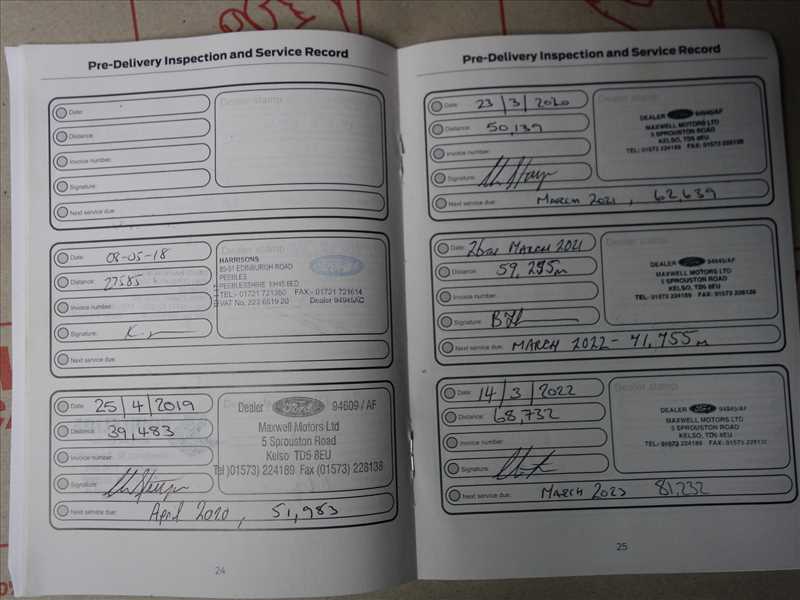 Pre-Delivery Inspection and Service Record
Date:
Distance:
Invoice number:
Signature:
Next service due:
Dealer stamp
Date: 08-05-18
Distance: 27585
Invoice number:
Signature:
Next service due:
Dealer stamp
HARRISONS
EDINBURGH ROAD
PEEBLES
PEEBLESSHIRE EH45 8ED
TEL:- 01721 721350 FAX:- 01721 721614
VAT No. 223 6519 20 Dealer 94945AC
Date: 25/4/2019
Distance: 39,483
Invoice number:
Signature:
Next service due: April 2020, 51,983
Dealer Ford 94609 / AF
Maxwell Motors Ltd
5 Sprouston Road
Kelso TD5 8EU
Tel (01573) 224189 Fax (01573) 228138
24
Pre-Delivery Inspection and Service Record
Date: 23/3/2020
Distance: 50,139
Invoice number:
Signature:
Next service due: MARCH 2021, 62,639
Dealer stamp
DEALER Ford 94945/AF
MAXWELL MOTORS LTD
5 SPROUSTON ROAD
KELSO, TD5 8EU
TEL: 01573 224189 FAX: 01573 228138
Date: 26TH MARCH 2021
Distance: 59,255m
Invoice number:
Signature:
Next service due: MARCH 2022 - 71,755m
Dealer stamp
DEALER Ford 94945/AF
MAXWELL MOTORS LTD
5 SPROUSTON ROAD
KELSO, TD5 8EU
TEL: 01573 224189 FAX: 01573 228138
Date: 14/3/2022
Distance: 68,732
Invoice number:
Signature:
Next service due: MARCH 2023 81,232
Dealer stamp
DEALER Ford 94945/AF
MAXWELL MOTORS LTD
5 SPROUSTON ROAD
KELSO, TD5 8EU
TEL: 01573 224189 FAX: 01573 228138
25